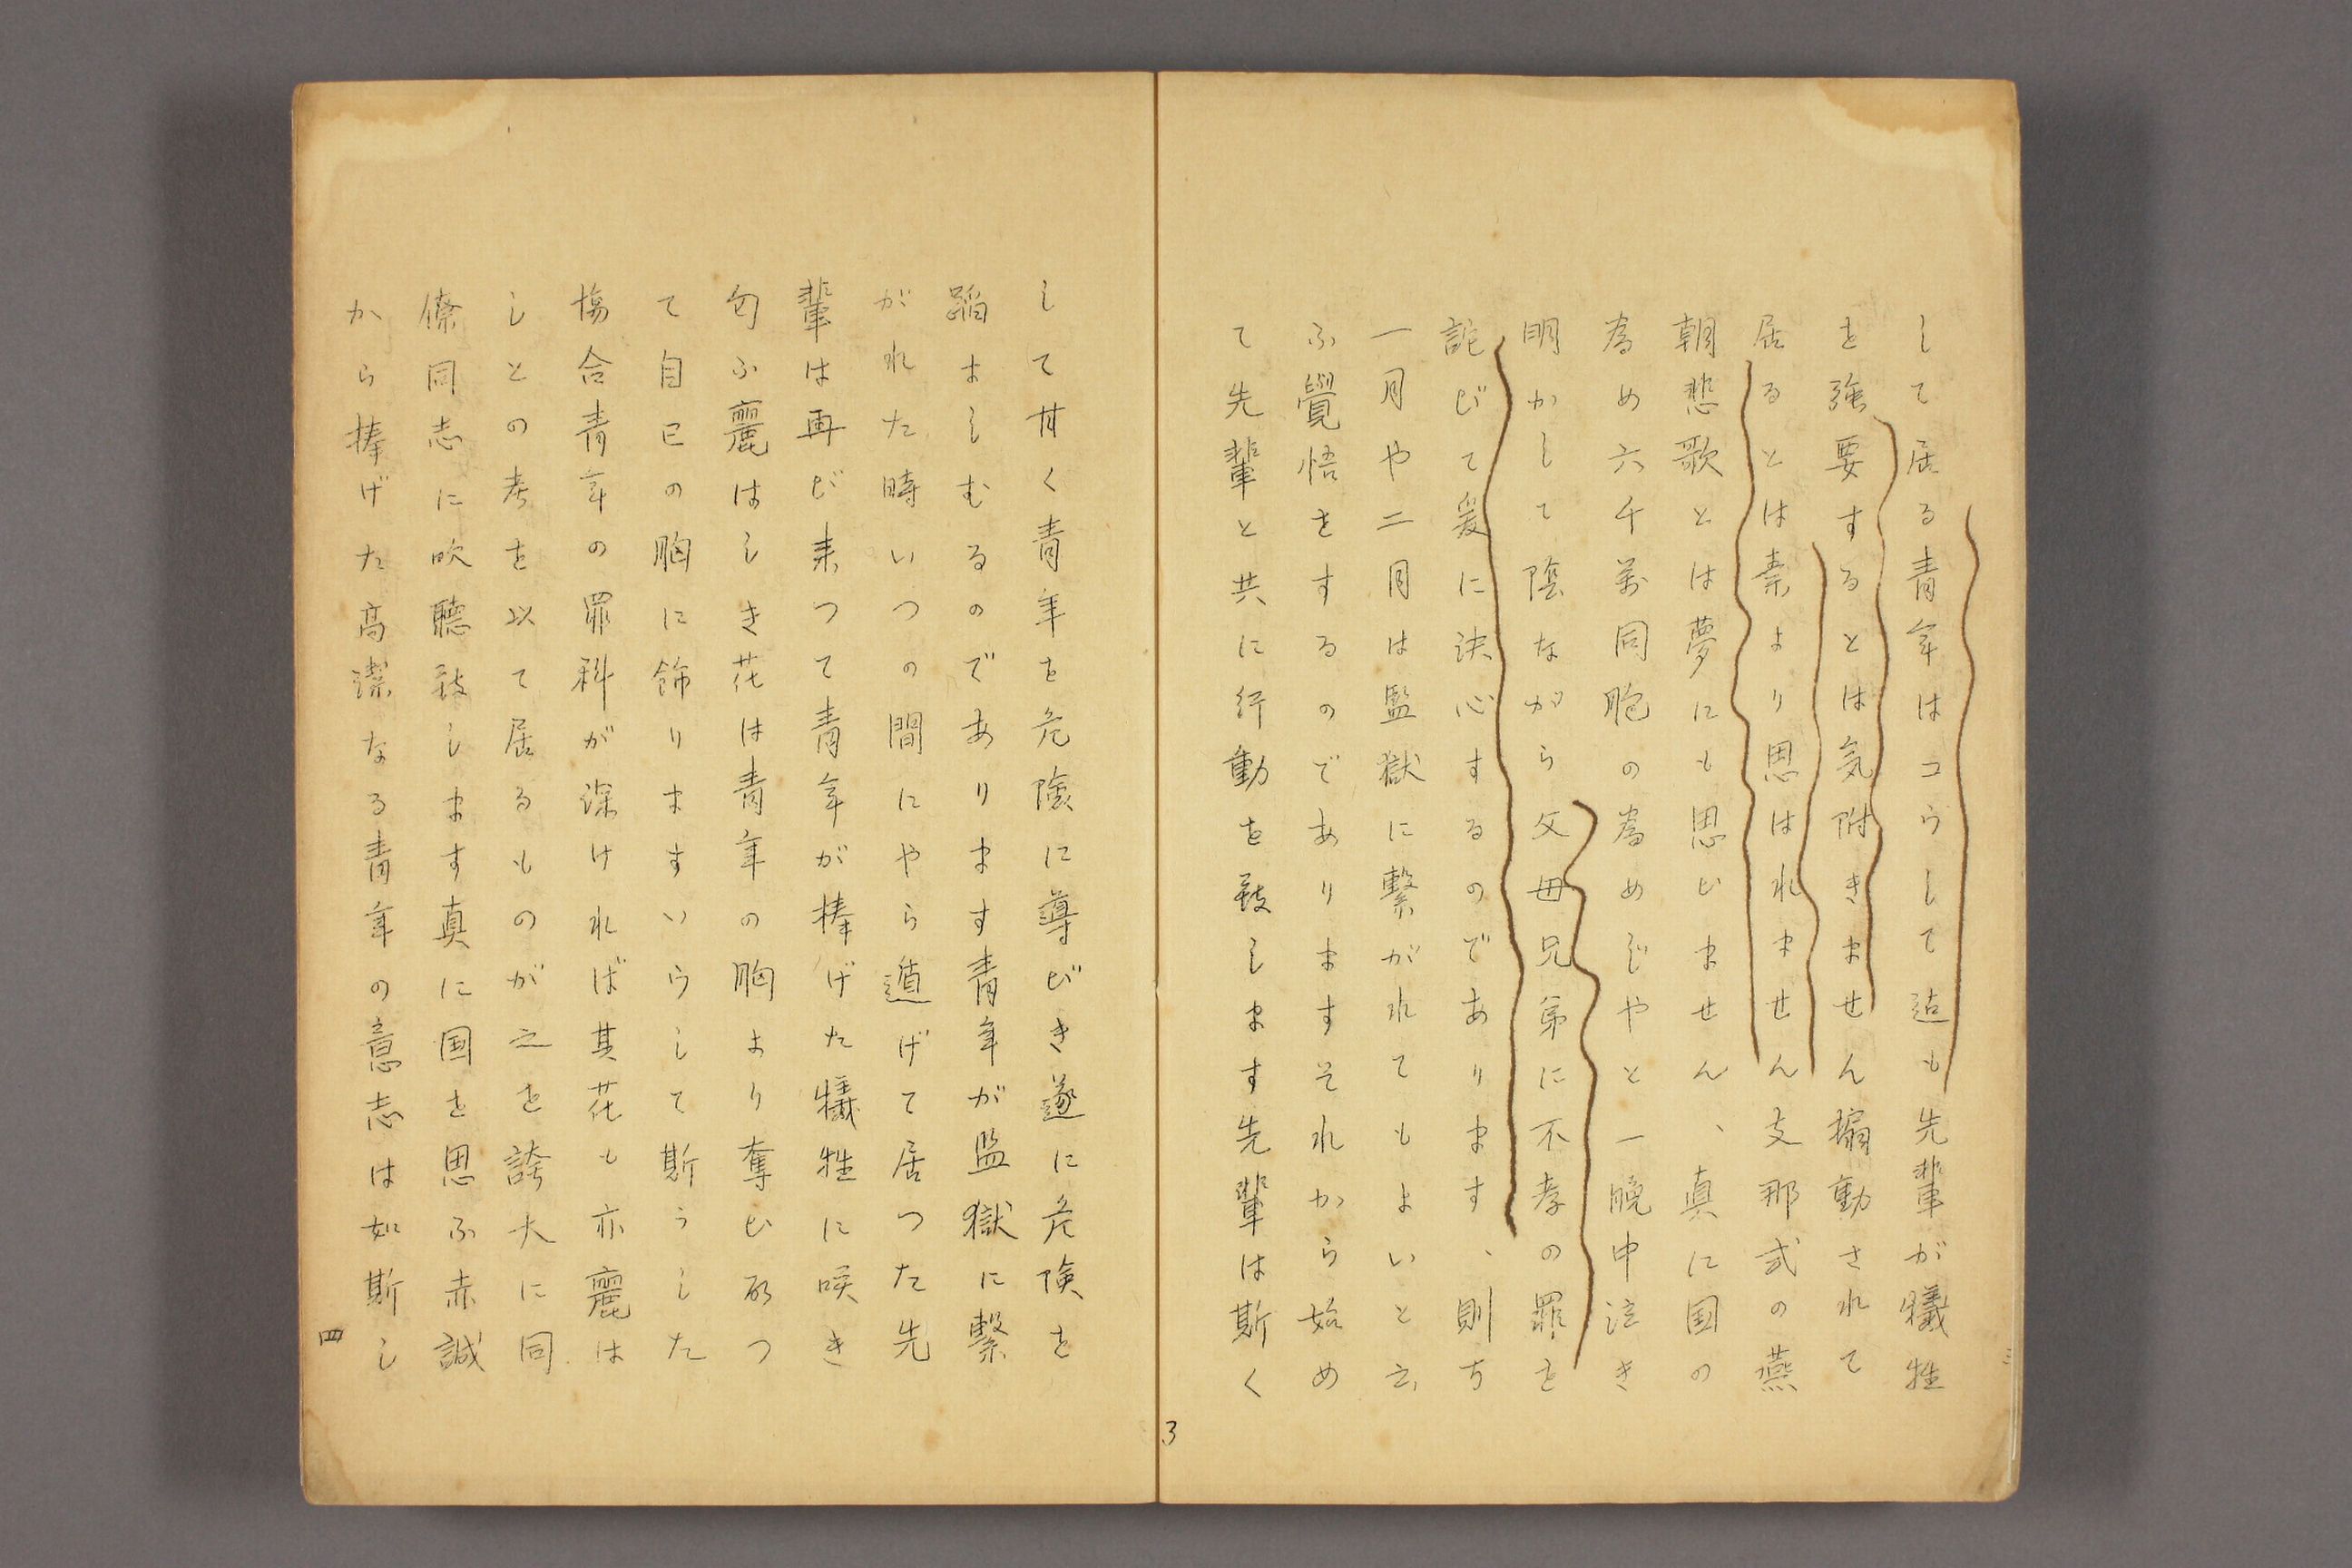 して居る青年はコウして迄も先輩が犠牲
を強要するとは気附きません搧動されて
居るとは素より思はれません支那式の燕
朝悲歌とは夢にも思ひません、真に国の
為め六千萬同胞の為めじやと一晩中泣き
明かして陰ながら父毌兄弟に不孝の罪を
詫びて爰に决心するのであります、則ち
一月や二月は監獄に繫がれてもよいと云
ふ覺悟をするのでありますそれから始め
て先輩と共に行動を致します先輩は斯く
3
三
して甘く青年を危険に導びき遂に危険を
蹈ましむるのであります青年が監獄に繫
がれた時いつの間にやら遁げて居つた先
輩は再び来つて青年が捧げた犠牲に咲き
匂ふ麗はしき花は青年の胸より奪ひ取つ
て自己の胸に飾りますいうして斯うした
塲合青年の罪科が深ければ其花も亦麗は
しとの考を以て居るものが之を誇大に同
僚同志に吹聴致します真に国を思ふ赤誠
から捧げた高潔なる青年の意志は如斯し
四